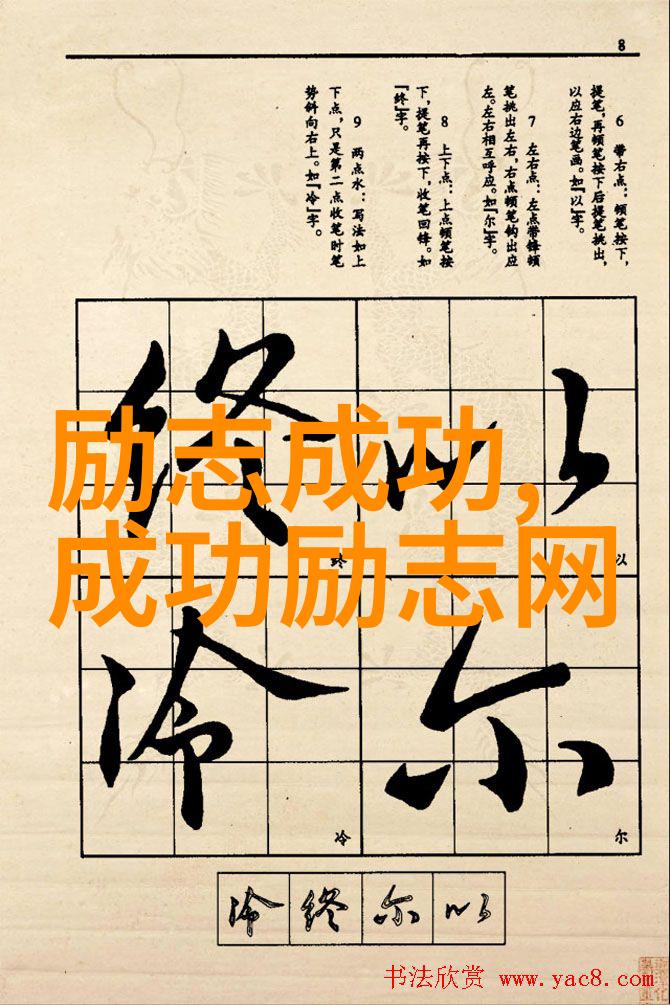 8
6 带右点：顿笔按下，
提笔，再顿笔按下后提笔挑出，
以应右边笔画。如『以』字。
7 左右点：左点带锋顿
笔挑出左右，右点顿笔钩出应
左。左右相互呼应。如『尔』字。
8 上下点：上点顿笔按
下，提笔再按下，收笔回锋。如
『终』字。
9 两点水：写法如上
下点，只是第二点收笔时笔
势斜向右上。如『冷』字。
以
以
尔
尔
终
终
冷
冷
励志成功,
成功励志网
冷 终 尔 以
书法欣赏 www.yac8.com